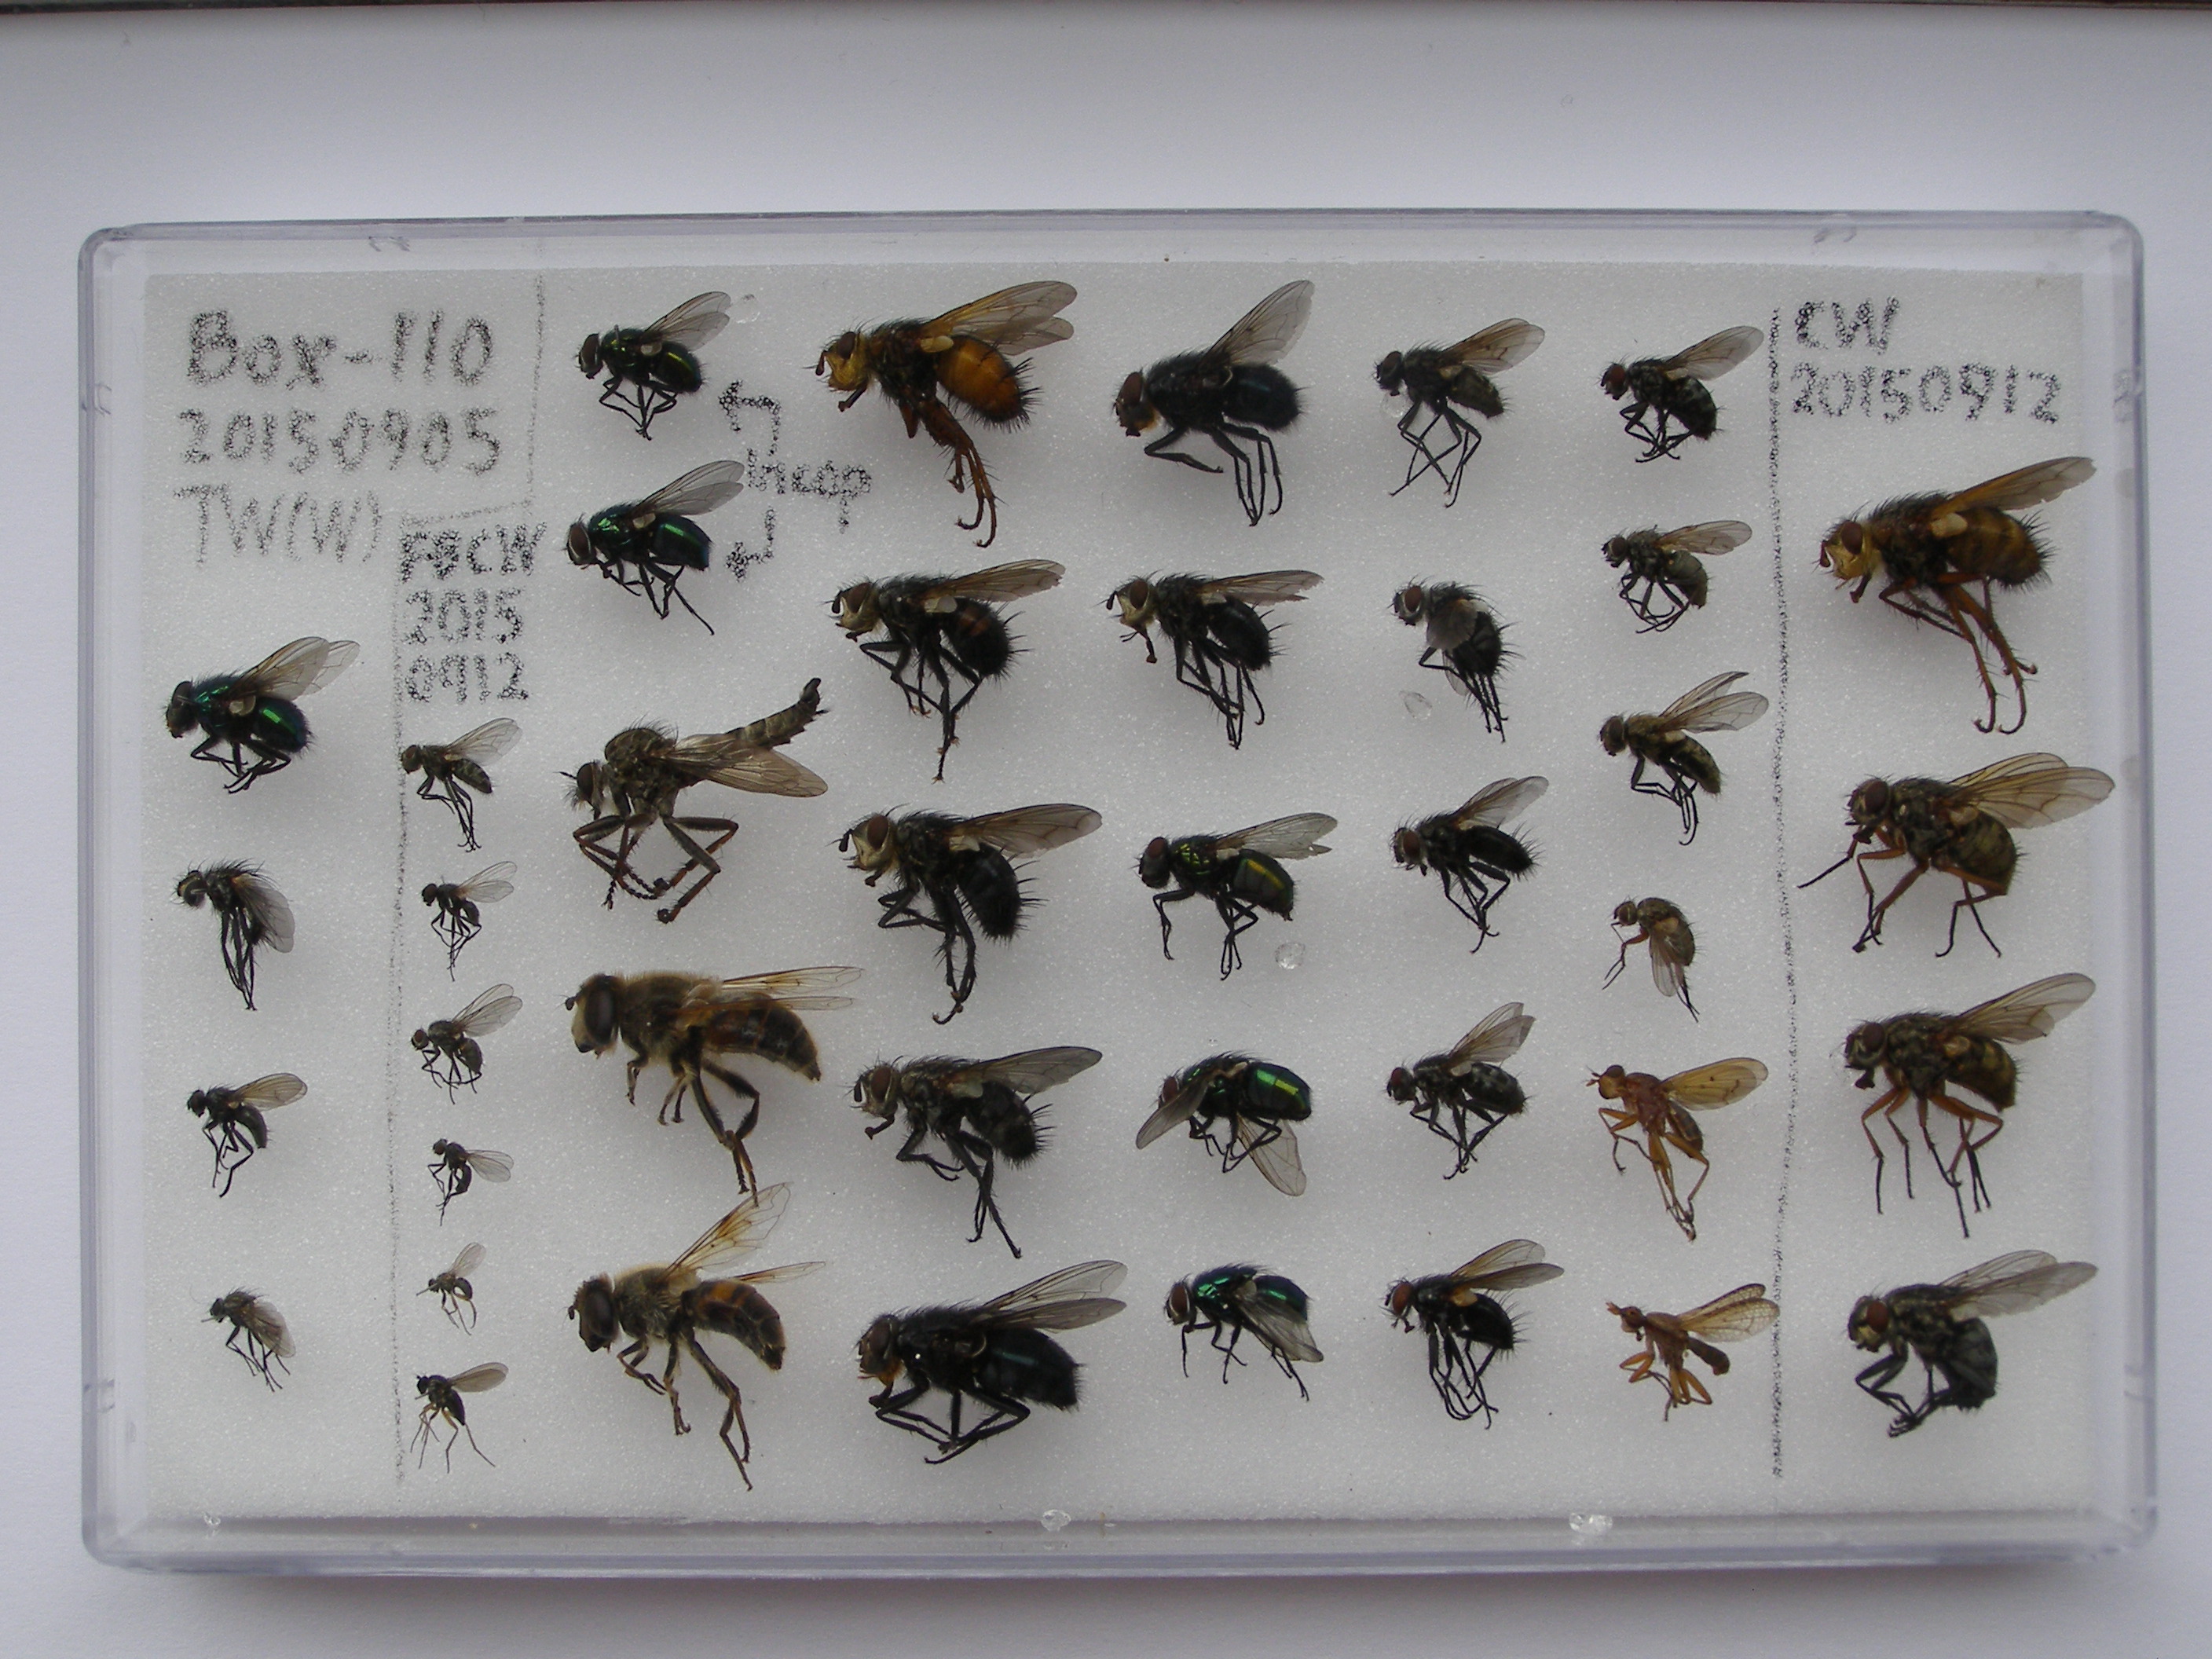 Box-110
20150905
TW(W)
FBCW
2015
0912
Incap
CW
20150912